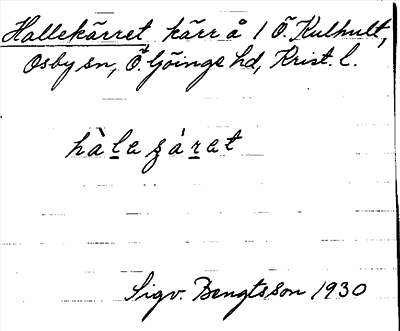 Hallekärret kärr å 1 Ö. Kulhult,
Osby sn, Ö. Göinge hd, Krist. l.
hàlaʒárat
Sigv. Bengtsson 1930